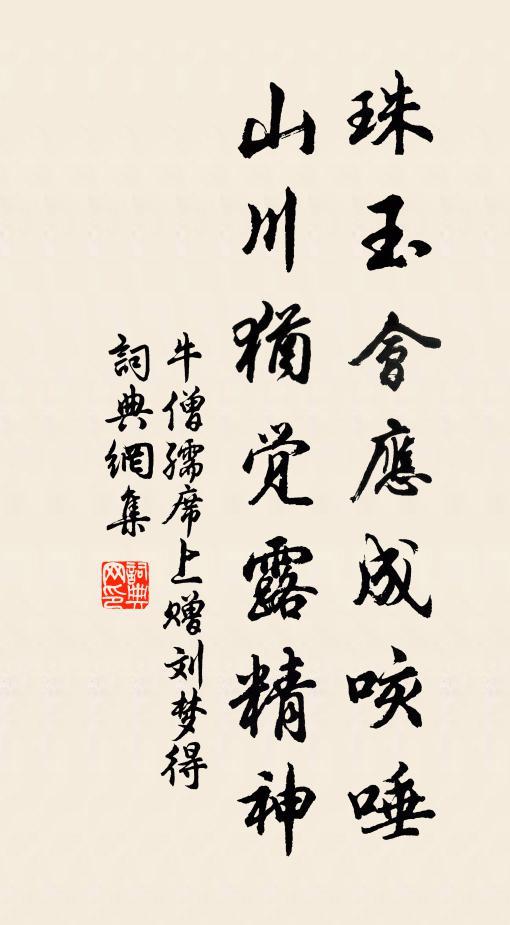 珠玉會應成咳唾
山川猶觉露精神
牛僧孺席上赠刘梦得
詞典網集
詞典网印